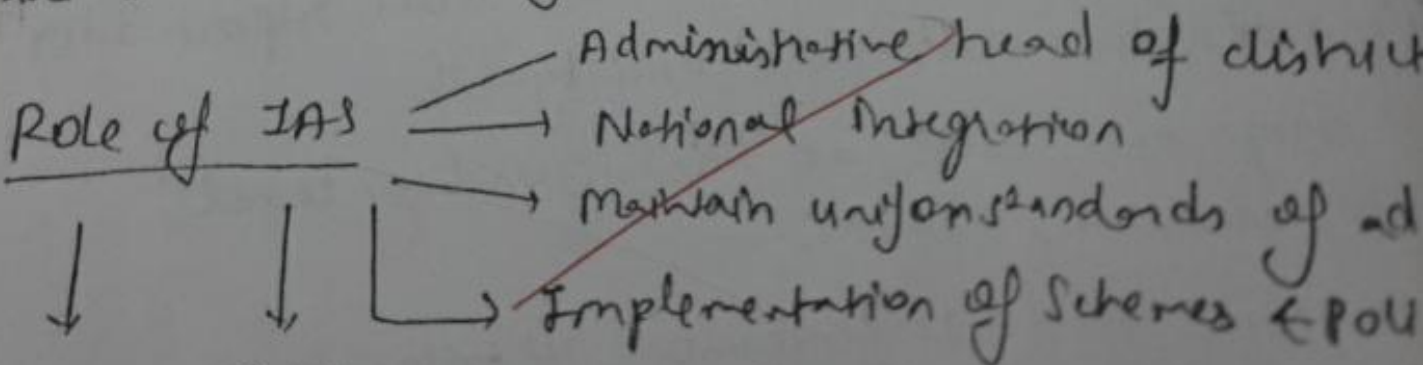 Administrative head of district
Role of IAS
National Integration
Maintain uniform standards of ad
Implementation of Schemes & Poli